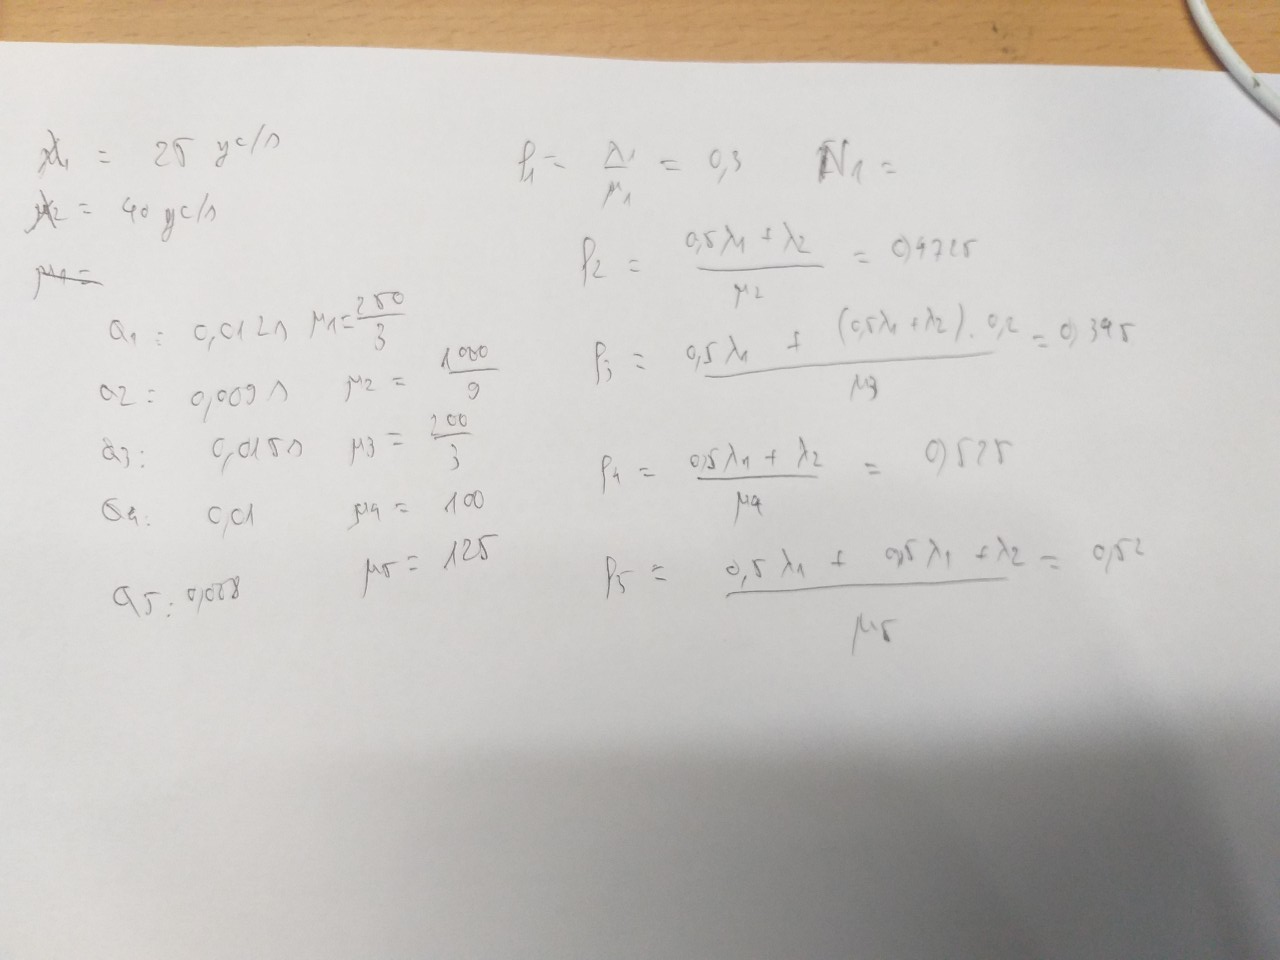 λ1 = 25 yc/s
λ2 = 40 yc/s
μ1 =
a1: 0,012s μ1 = 250/3
a2: 0,009s μ2 = 1000/9
a3: 0,015s μ3 = 200/3
a4: 0,01 μ4 = 100
a5: 0,008 μ5 = 125
ρ1 = λ1/μ1 = 0,3 N1 =
ρ2 = (0,5λ1 + λ2)/μ2 = 0,4725
ρ3 = (0,5λ1 + (0,5λ1 + λ2) . 0,2)/μ3 = 0,345
ρ4 = (0,5λ1 + λ2)/μ4 = 0,525
ρ5 = (0,5λ1 + 0,5λ1 + λ2)/μ5 = 0,52